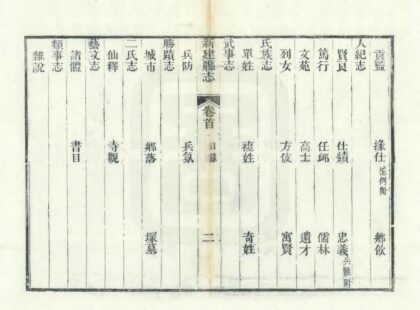 貢監 掾仕 監例附 鄉飲
人紀志
賢良 仕績 忠義 兵難附
篤行 任卹 儒林
文苑 高士 遺才
列女 方伎 寓賢
氏族志
單姓 複姓 奇姓
武事志
新建縣志 卷首 目錄 二
兵防 兵氛
勝蹟志
城市 鄉落 塚墓
二氏志
仙釋 寺觀
藝文志
諸體 書目
類事志
雜說